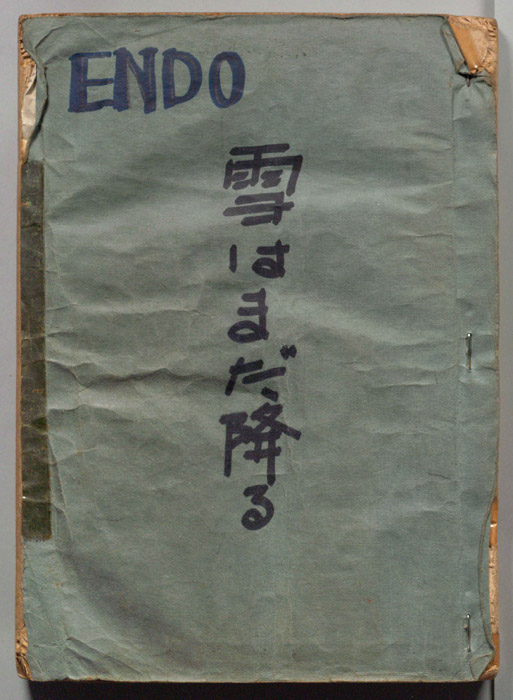 ENDO
雪はまだ降る